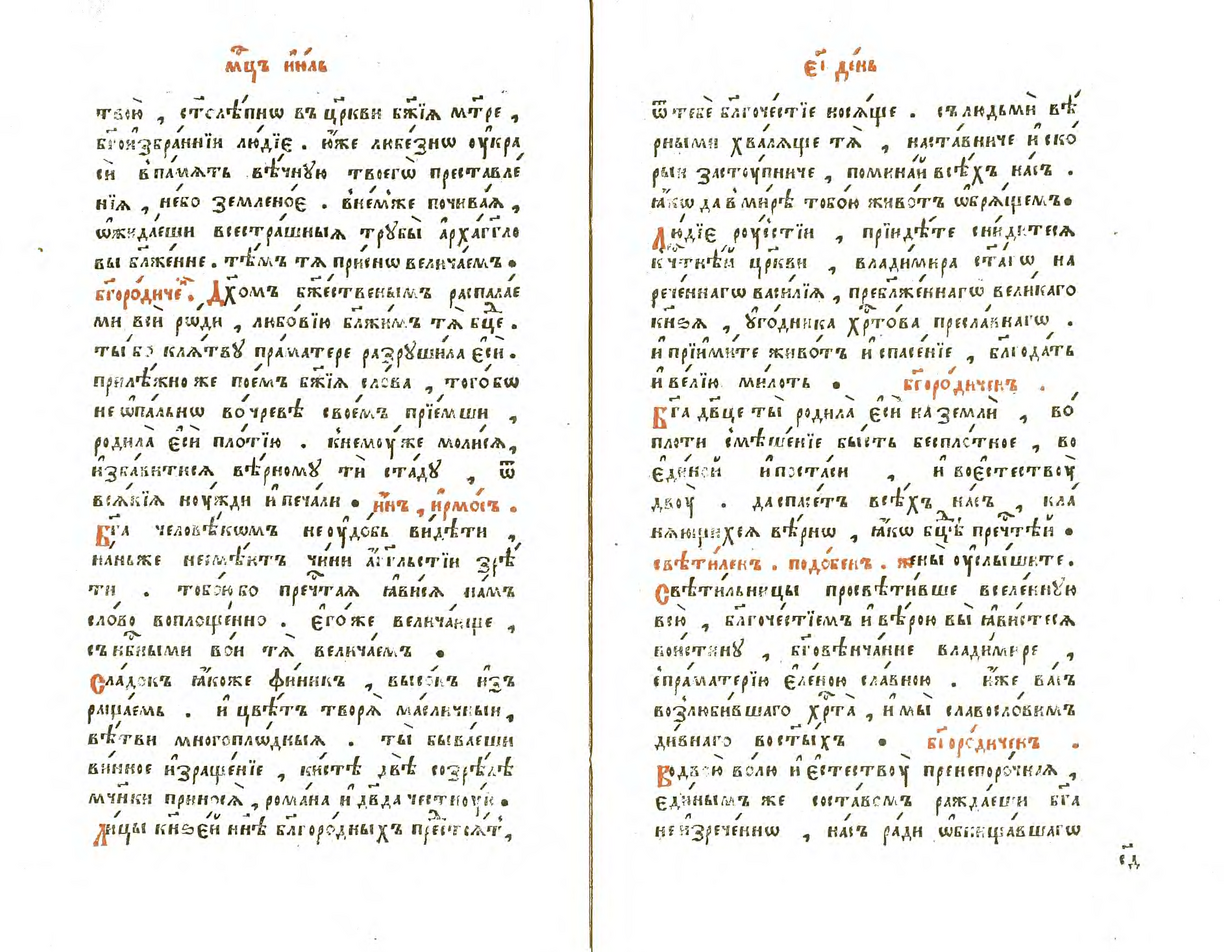 мц҃ъ їю́ль
твою̀ , ст҃олѣ́пнѡ въ цр҃кви бж҃їѧ мт҃ре ,
бг҃оизбра́ннїи лю́дїе . ю҆́же любе́знѡ ᲂу҆кра
сѝ в па́мѧть вѣ́чнꙋю твоегѡ̀ преставле
нїѧ , не́бо земленоѐ . в не́мже почива́ѧ ,
ѡ҆жида́еши всестра́шныѧ трꙋбы̀ а҆рха́гг҃ло
вы бл҃же́нне . тѣ́мъ тѧ при́снѡ велича́емъ .
бг҃оро́диче҇ . Дх҃омъ бж҃е́ственымъ распала́е
ми всѝ ро́ди , любо́вїю бл҃жи́мъ тѧ̀ бц҃е .
ты́ бо клѧ́твꙋ прама́тере разрꙋши́ла є҆сѝ .
прилѣ́жно же пое́мъ бж҃їѧ сло́ва , того́ бѡ
не ѡ҆па́льнѡ во чре́вѣ свое́мъ прїе́мши ,
родила̀ є҆сѝ пло́тїю . к нему́же моли́сѧ ,
и҆зба́витисѧ вѣ́рномꙋ тѝ ста́дꙋ , ѿ
всѧ́кїѧ нᲂу́жди и҆ печа́ли . нн҃ѣ , і҆рмо́съ .
Бг҃а человѣ́кѡмъ не ᲂу҆до́бь ви́дѣти ,
на ньже не смѣ́ютъ чи́ни а҆гг҃льстїи зрѣ́
ти . тобо́ю бо пречⷭ҇таѧ ꙗ҆ви́сѧ на́мъ
сло́во воплоще́нно . є҆го́же велича́юще ,
съ нб҃ными во́и тѧ̀ велича́емъ .
Сла́докъ ꙗ҆́коже фи́никъ , высо́къ и҆зъ
раща́емь . и҆ цвѣ́тъ творѧ̀ ма́сличныи ,
вѣ́тви многоплѡ́дныѧ . ты̀ быва́еши
ви́нное и҆зраще́нїе , ки́стѣ двѣ̀ созрѣ́лѣ
мч҃нки приносѧ̀ , рома́на и҆ дв҃да честно́ую .
Ли́цы кнѧзе́й нн҃ѣ бл҃горо́дныхъ предстоѧ́т ,
є҃і де́нь
ѿ тебѐ бл҃гоче́стїе носѧ́ще . съ людьмѝ вѣ́
рными хва́лѧще тѧ̀ , наста́вниче и҆ ско́
рыи засту́пниче , помина́й всѣ́хъ на́съ .
ꙗ҆́кѡ да в ми́рѣ тобо́ю живо́тъ ѡ҆брѧ́щемъ .
Лю́дїе рᲂу́стїи , прїидѣ́те сни́дѣтеся
к чт҃нѣ́й цр҃кви , влади́мира ст҃а́гѡ на
рече́ннагѡ васи́лїѧ , пребл҃же́ннагѡ вели́каго
кнѧ́зѧ , ᲂу҆го́дника хр҃то́ва пресла́внагѡ .
и҆ прїими́те живо́тъ и҆ спасе́нїе , бл҃года́ть
и҆ ве́лїю ми́лоть . бг҃оро́диченъ .
Бг҃а дв҃це ты̀ родила̀ є҆сѝ на землѝ , во́
плоти смѣше́нїе бы́сть беспло́тное , во
є҆ди́ной и҆поста́си , и҆ во є҆стествᲂу̀
двою̀ . да спасе́тъ всѣ́хъ на́съ , кла́
нѧющихсѧ вѣ́рнѡ , ꙗ҆́кѡ бц҃ѣ̀ пречт҃ѣй .
свѣти́ленъ . подо́бенъ . жены̀ ᲂу҆слы́шите .
Свѣти́льницы просвѣти́вше вселе́ннꙋю
всю̀ , бл҃гоче́стїемъ и҆ вѣ́рою вы̀ ꙗ҆ви́стесѧ
вои́стинꙋ , бг҃овѣнча́нне влади́мире ,
с прама́терїю є҆ле́ною сла́вною . и҆́же ва́съ
возлюби́вшаго хр҃та̀ , и҆ мы̀ славосло́вимъ
ди́внаго во ст҃ы́хъ . бг҃оро́диченъ .
В одво́ю во́лю и҆ є҆стествᲂу̀ пренепоро́чнаѧ ,
є҆ди́нымъ же соста́вомъ ражда́еши бг҃а
не и҆зрече́ннѡ , на́съ ра́ди ѡ҆бнища́вшаго
с҃д